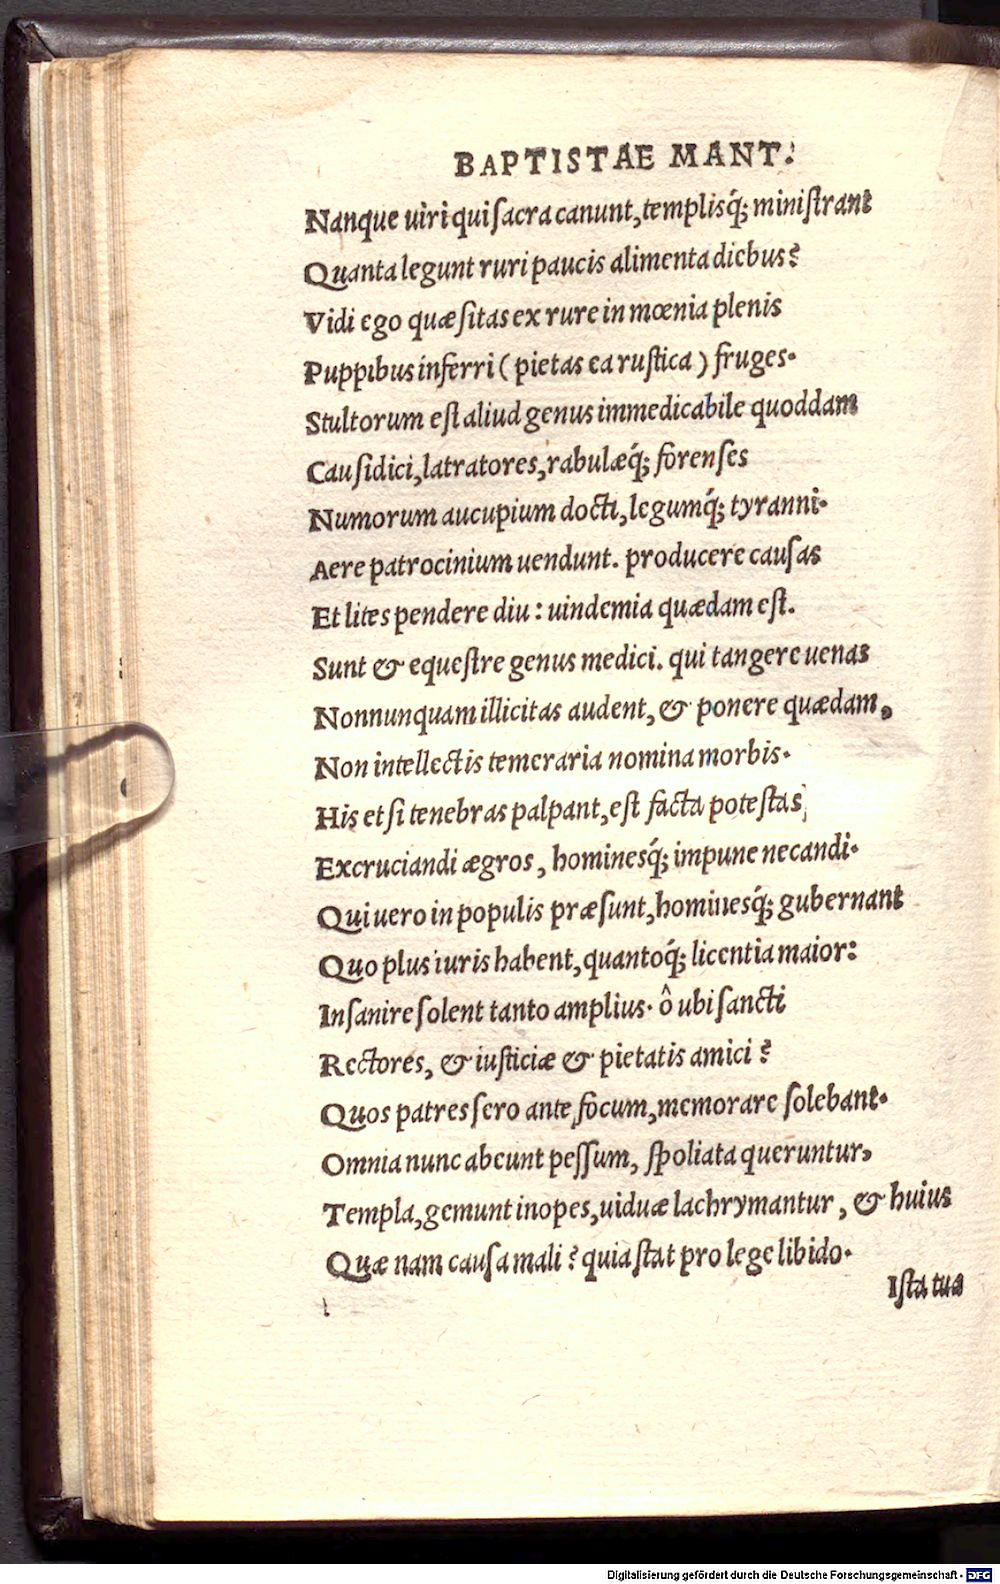 BAPTISTAE MANT.
Nanque uiri qui ſacra canunt, templisq́; miniſtrant
Quanta legunt ruri paucis alimenta diebus?
Vidi ego quæſitas ex rure in mœnia plenis
Puppibus inferri ( pietas ea ruſtica ) fruges.
Stultorum eſt aliud genus immedicabile quoddam
Cauſidici, latratores, rabulæq́; forenſes
Numorum aucupium docti, legumq́; tyranni.
Aere patrocinium uendunt. producere cauſas
Et lites pendere diu : uindemia quædam eſt.
Sunt & equeſtre genus medici. qui tangere uenas
Nonnunquam illicitas audent, & ponere quædam,
Non intellectis temeraria nomina morbis.
His et ſi tenebras palpant, eſt facta poteſtas
Excruciandi ægros, hominesq́; impune necandi.
Qui uero in populis præſunt, hominesq́; gubernant
Quo plus iuris habent, quantoq́; licentia maior:
Inſanire ſolent tanto amplius. ô ubi ſancti
Rectores, & iuſticiæ & pietatis amici?
Quos patres ſero ante focum, memorare ſolebant.
Omnia nunc abeunt peſſum, ſpoliata queruntur,
Templa, gemunt inopes, uiduæ lachrymantur, & huius
Quæ nam cauſa mali? quia ſtat pro lege libido.
Iſta tua
Digitalisierung gefördert durch die Deutsche Forschungsgemeinschaft - DFG